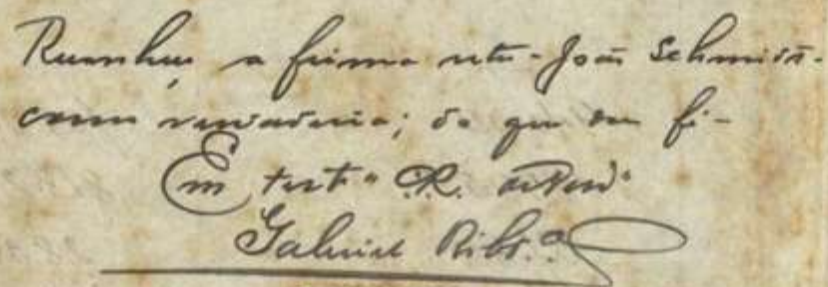 Reconheço a firma retro - João Schmidt -
como verdadeira; do que dou fé -
Em testº R. da Verdº
Gabriel Ribº